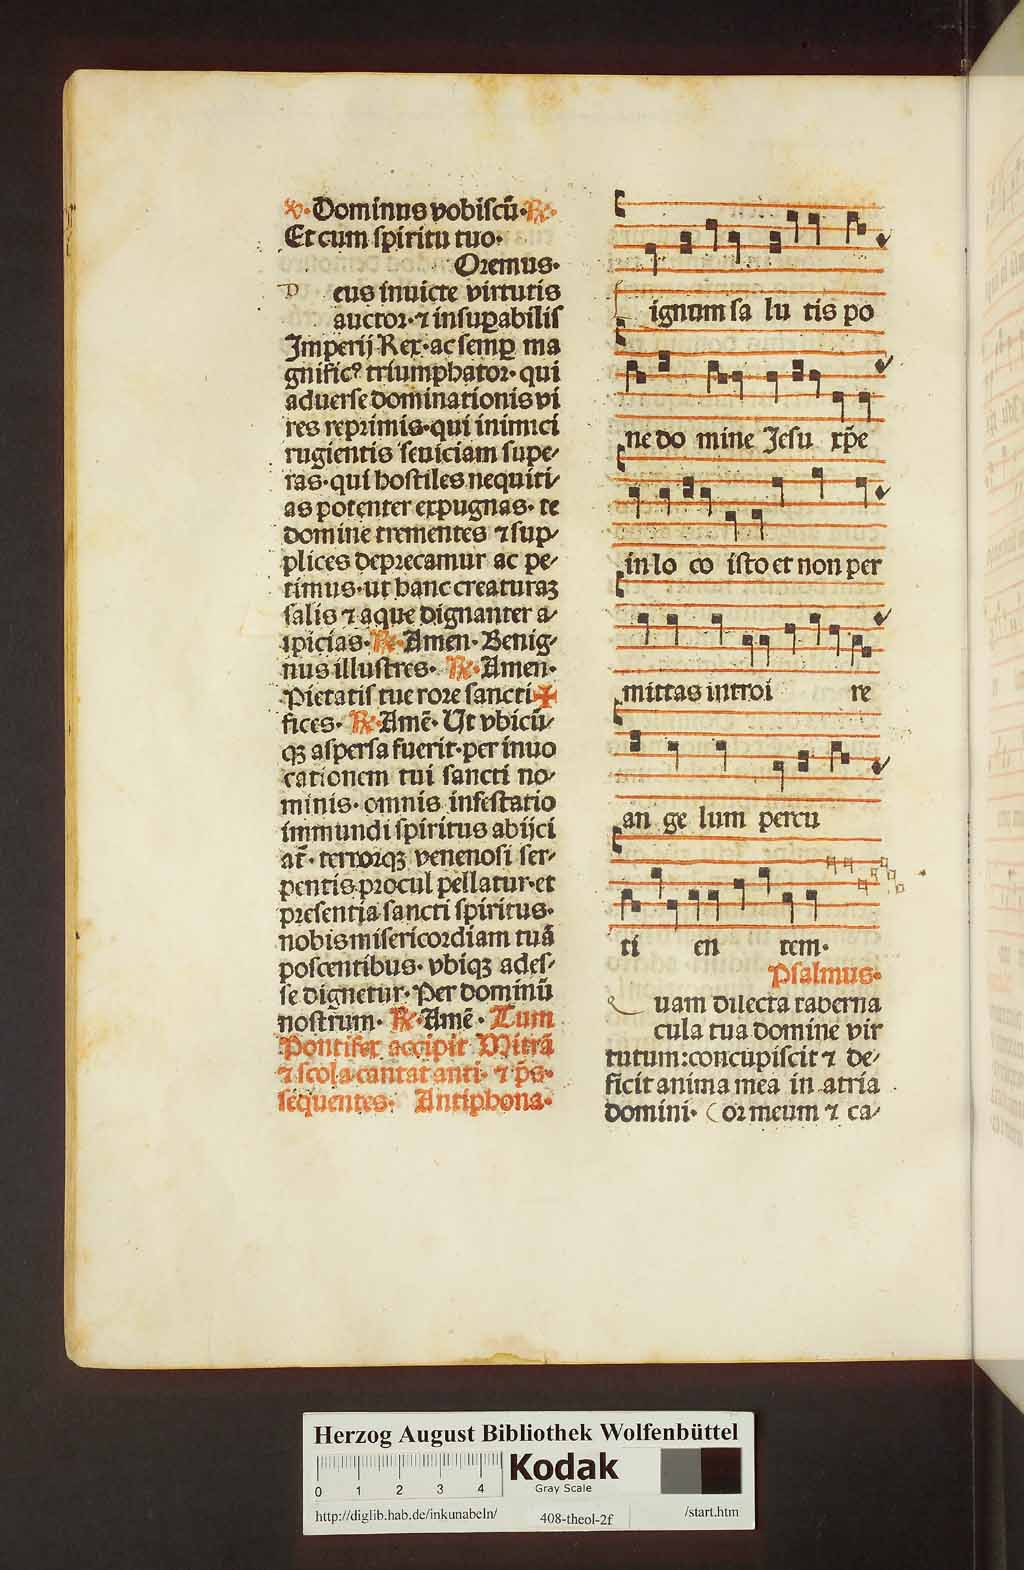 ℣· Dominus vobiscū· ℟·
Et cum spiritu tuo·
Oremus·
D eus invicte virtutis
auctor· ⁊ insuꝑabilis
Imperij Rex· ac semꝑ ma
gnificꝰ triumphator· qui
aduerse dominationis vi
res reprimis· qui inimici
rugientis seuiciam supe-
ras· qui hostiles nequiti-
as potenter expugnas· te
domine trementes ⁊ sup-
plices deprecamur ac pe-
timus· ut hanc creaturaꝫ
salis ⁊ aque dignanter a-
spicias· ℟· Amen· Benig-
nus illustres· ℟· Amen·
Pietatis tue rore sancti ✠
fices· ℟· Amē· Ut vbicū-
qꝫ aspersa fuerit· per inuo
cationem tui sancti no-
minis· omnis infestatio
immundi spiritus abijci
at̄· terrorqꝫ venenosi ser-
pentis procul pellatur· et
presentia sancti spiritus·
nobis misericordiam tuā
poscentibus· vbiqꝫ ades-
se dignetur· Per dominū
nostrum· ℟· Amē· Tum
Pontifex accipit Mitrā
⁊ scola cantat anti· ⁊ p̄s·
sequentes· Antiphona·
ignum sa lu tis po
ne do mine Jesu xp̄e
in lo co isto et non per
mittas introi re
an ge lum percu
ti en tem·
Psalmus·
Q uam dilecta taberna
cula tua domine vir
tutum: concupiscit ⁊ de-
ficit anima mea in atria
domini· Cor meum ⁊ ca-
Herzog August Bibliothek Wolfenbüttel
0 1 2 3 4
Kodak
Gray Scale
http://diglib.hab.de/inkunabeln/ 408-theol-2f /start.htm